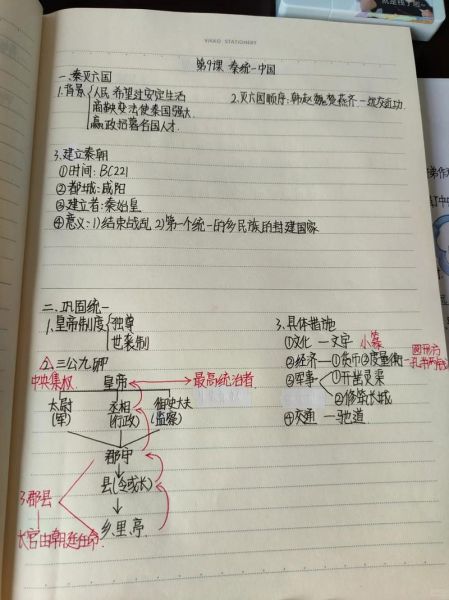 VIKKO STATIONERY
第9课 秦统一中国
一、秦灭六国
1.背景 人民希望过安定生活
商鞅变法使秦国强大
嬴政招募各国人才.
2.灭六国顺序:韩赵魏楚燕齐—远交近攻
3.建立秦朝
①时间:BC221
②都城:咸阳
③建立者:秦始皇
④意义:1)结束战乱 2)第一个统一的多民族的封建国家
二、巩固统一
1.皇帝制度 独尊
世袭制
2.三公九卿
中央集权 皇帝 最高统治者
太尉 丞相 御史大夫
(军) (行政) (监察)
郡守
县(令或长)
乡、里、亭
3郡县
长官由朝廷任命
3.具体措施
①文化—文字 小篆
②经济—①货币②度量衡 圆形方孔半两钱
③军事 ①开凿灵渠
②修筑长城
④交通—驰道